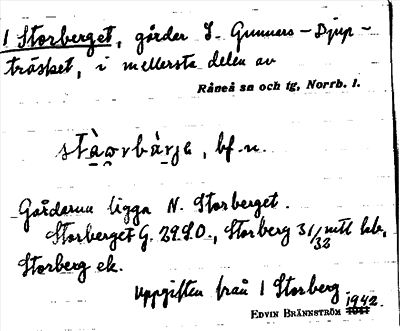 1 Storberget, gårdar S. Gunnars-Djup-
träsket, i mellersta delen av
Råneå sn och tg, Norrb. l.
stàorbàrje, bf. n.
Gårdarna ligga N. Storberget.
Storberget G. 29.S.O., Storberg 31/32 mtl kb,
Storberg ek.
Uppgiften från 1 Storberg
EDVIN BRÄNNSTRÖM 1942.